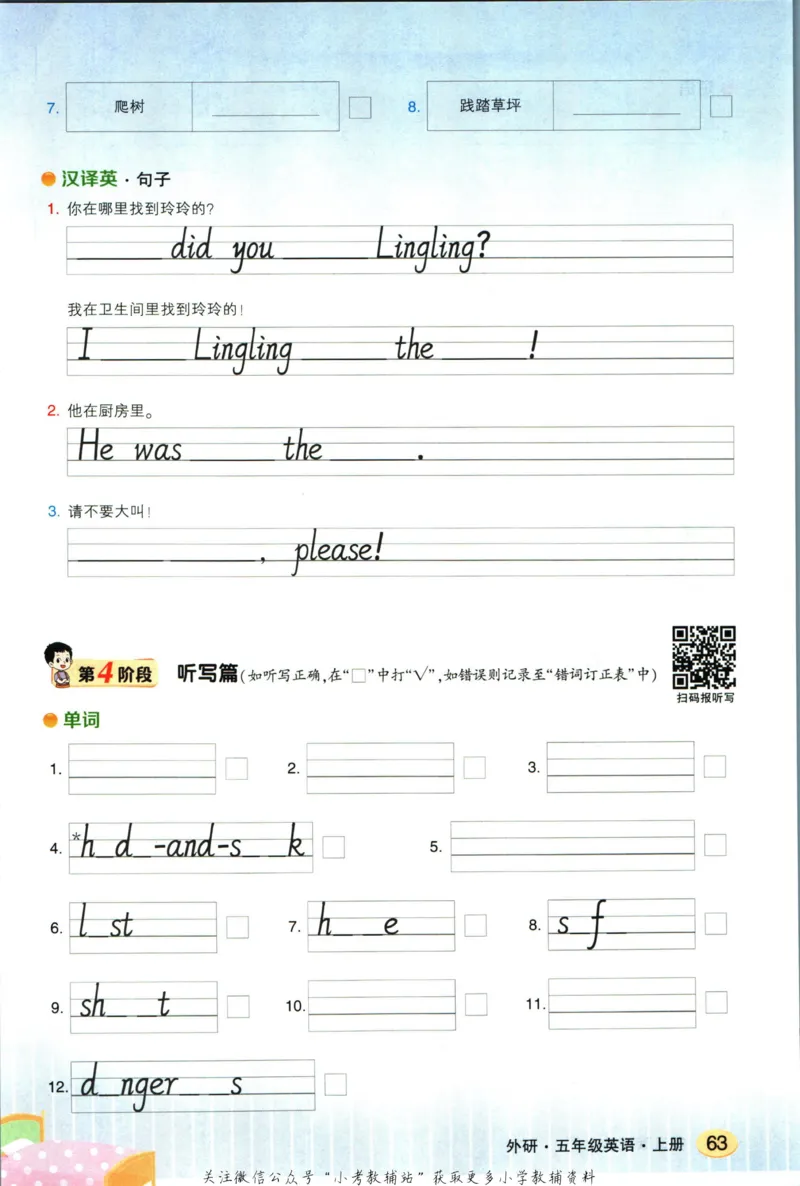 7. 爬树 ________ 8. 践踏草坪 ________
汉译英·句子
1. 你在哪里找到玲玲的?
________ did you ________ Lingling?
我在卫生间里找到玲玲的!
I ________ Lingling ________ the ________!
2. 他在厨房里。
He was ________ the ________.
3. 请不要大叫!
________ ________, please!
第4阶段 听写篇(如听写正确,在“□”中打“√”,如错误则记录至“错词订正表”中)
扫码报听写
单词
1. 2. 3.
4. *h_d_-and-s_ _k 5.
6. l_st 7. h_ _e 8. s_f_
9. sh_ _t 10. 11.
12. d_nger_ _s
外研·五年级英语·上册 63
关注微信公众号“小考教辅站”获取更多小学教辅资料